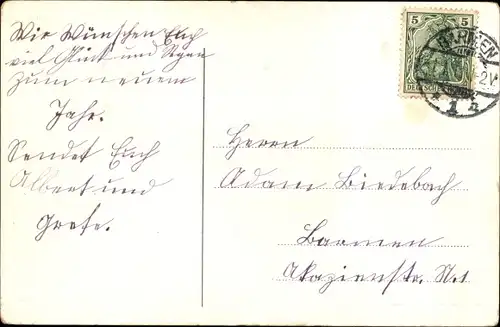 Wir Wünschen Euch
viel Glück und Segen
zum neuem
Jahr.
Sendet Euch
Albert und
Grete.
5 5
DEUTSCHES REICH
BARMEN
1 n
Herrn
Adam Biedebach
Barmen
Akazienstr. № 1